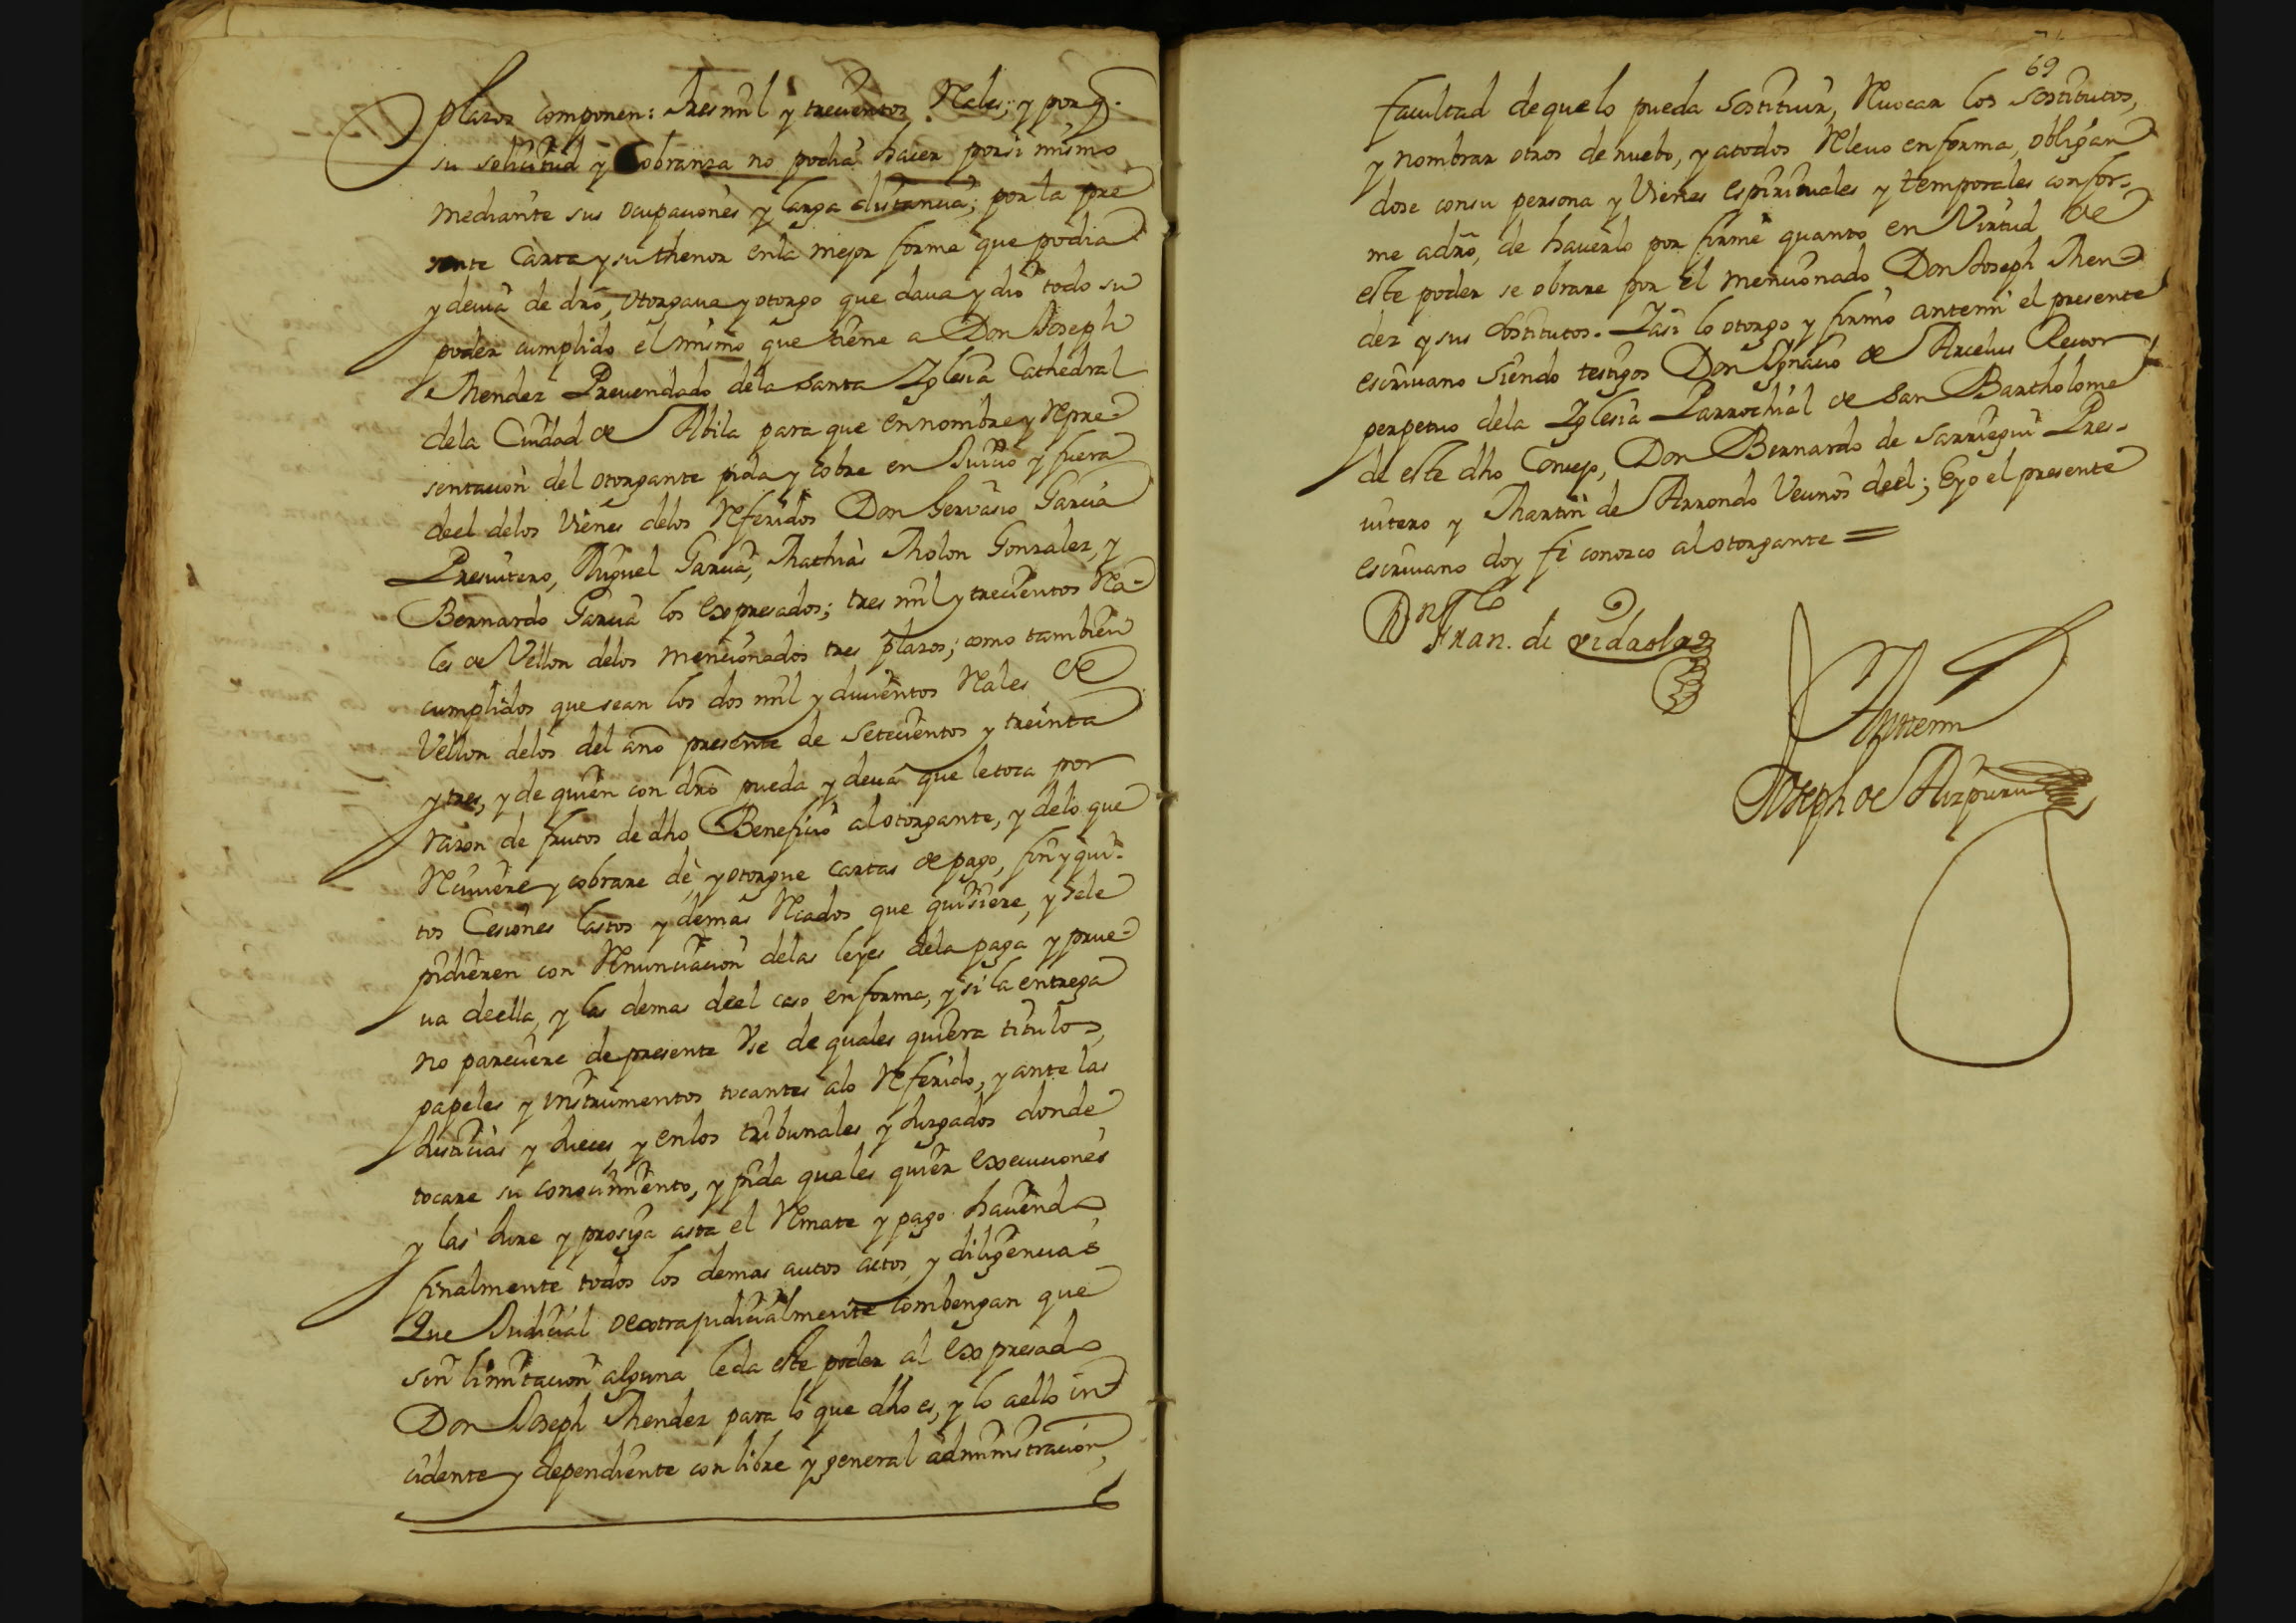 plazos componen: tres mil y trecientos Rales; y porq.
su solicitud y cobranza no podia hacer porsi mismo
mediante sus ocupaciones y larga distancia; por la pre
sente Carta y su thenor enla mejor forma que podia
y devia de dro, otorgava y otorgo que dava y dio todo su
poder cumplido el mismo que tiene a Don Joseph
Mendez Prevendado dela Santa Iglesia Cathedral
dela Ciudad de Abila para que en nombre y Repre-
sentacion del otorgante pida y cobre en Juicio y fuera
deel delos Vienes delos Referidos Don Gervasio Garcia
Presvitero, Miguel Garcia, Mathias Molon Gonzalez, y
Bernardo Garcia los expresados; tres mil y trecientos Ra-
les de Vellon delos mencionados tres plazos; como tambien
cumplidos que sean los dos mil y ducientos Rales de
Vellon delos del año presente de setecientos y treinta
y tres, y de quien con dro pueda y deva que letoca por
razon de frutos de dho Beneficio al otorgante, y delo que
Reciviere y cobrare dé, y otorgue cartas de pago, fin y qui-
tos Cesiones lastos y demas Rcados que quisiere, y sele
pidieren con Renunciacion delas leyes dela paga y prue-
va deella, y las demas deel caso en forma, y si la entrega
no pareciere de presente Use de quales quiera titulos,
papeles y instrumentos tocantes alo Referido, y ante las
Justicias y Jueces, y enlos tribunales y Juzgados donde
tocare su conocimiento, y pida quales quier execuciones
y las Jure y prosiga asta el Remate y pago haciendo
finalmente todos los demas autos actos, y diligencias
Que Judicial oextrajudicialmente combengan que
sin limitacion alguna leda este poder al expresado
Don Joseph Mendez para lo que dho es, y lo aello in-
cidente y dependiente con libre y general administracion,
69
facultad de quelo pueda Sostituir, Revocar los Sostitutos,
y nombrar otros de nuebo, y atodos Relevo en forma, obligan
dose consu persona y Vienes espirituales y temporales confor-
me adro, de haverlo por firme quanto en Virtud de
este poder se obrare por el mencionado Don Joseph Men-
dez y sus sostitutos. Y asi lo otorgo y firmo antemi el presente
escrivano siendo testigos Don Ignacio de Arcelus Rector
perpetuo dela Iglesia Parrochial de San Bartholome
de este dho Concejo, Don Bernardo de Sarriegui Pres-
vitero y Martin de Arrondo Vecinos deel; E yo el presente
escrivano doy fé conozco al otorgante =
Dn Fran. de vidaola
Antemi
Joseph de Aizpuru